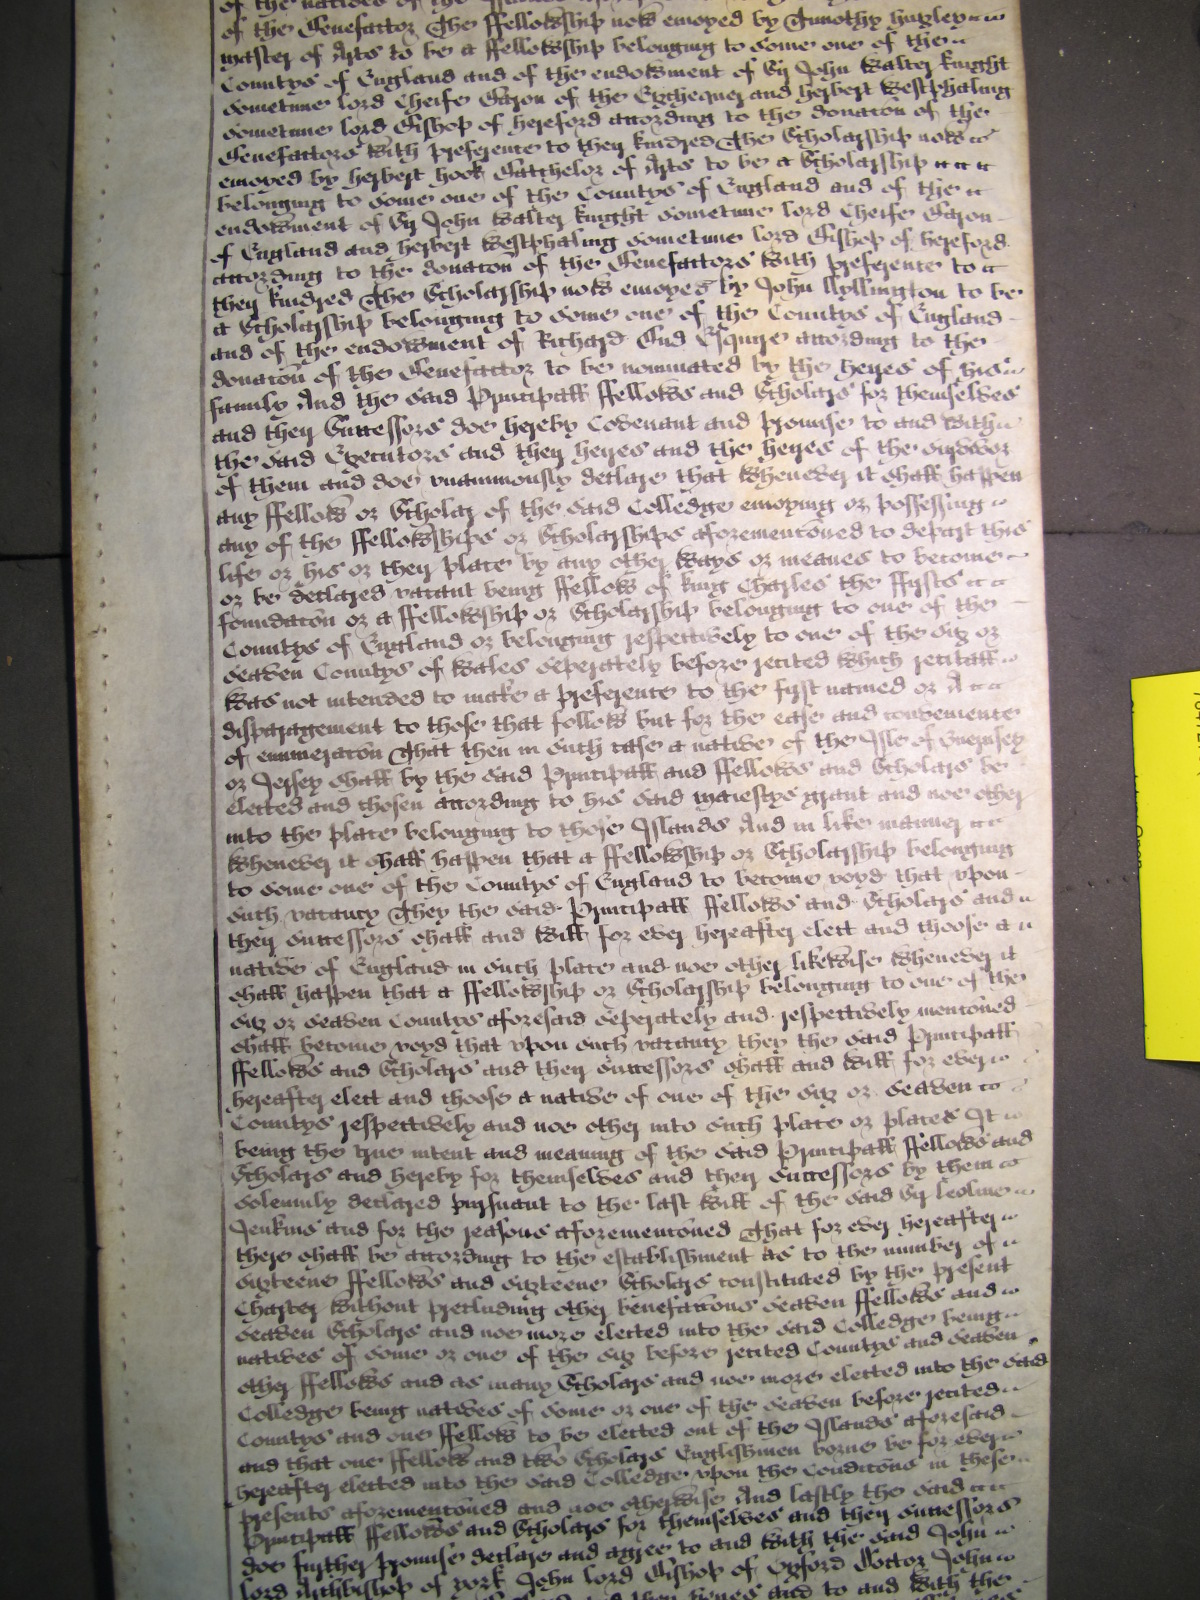 of the natives of the
of the Benefactor The ffellowship now enioyed by Timothy hugley
Master of Arts to be a ffellowship belonging to some one of the
Countys of England and of the endowment of Sir John Walter knight
sometime lord Cheife Baron of the Exchequer and herbert Westphaling
sometime lord Bishop of hereford according to the donacon of the
Benefactors with preference to their kindred The Scholarship now
enioyed by herbert hook Batchelor of Arts to be a Scholarship
belonging to some one of the Countys of England and of the
endowment of Sir John Walter knight sometime lord Cheife Baron
of England and herbert Westphaling sometime lord Bishop of hereford
according to the donacon of the Benefactors with preference to
their kindred The Scholarship now enioyed by John Illington to be
a Scholarship belonging to some one of the Countys of England
and of the endowment of Richard Esquire according to the
donacon of the Benefactor to be nominated by the heires of his
family And the said Principall ffellows and Scholars for themselves
and their Successors doe hereby Covenant and promise to and with
the said Executors and their heires and the heires of the survivor
of them and doe vnanimously declare that whenever it shall happen
any ffellow or Scholar of the said Colledge enioying or possessing
any of the ffellowships or Scholarships aforementioned to depart this
life or his or their place by any other ways or meanes to become
or be declared vacant being ffellow of king Charles the ffirsts
foundacon or a ffellowship or Scholarship belonging to one of the
Countys of England or belonging respectively to one of the six or
seaven Countys of Wales seperately before recited which recitall
was not intended to make a preference to the first named or A
disparagement to those that follow but for the ease and convenience
of enumeracon That then in such case a native of the Isle of Guernsey
or Jersey shall by the said Principall and ffellows and Scholars be
elected and chosen according to his said maiestys grant and noe other
into the place belonging to those Islands And in like manner
whenever it shall happen that a ffellowship or Scholarship belonging
to some one of the Countys of England to become voyd that vpon
such vacancy They the said Principall ffellows and Scholars and
their successors shall and will for ever hereafter elect and choose a
native of England in such place and noe other likewise whenever it
shall happen that a ffellowship or Scholarship belonging to one of the
six or seaven Countys aforesaid seperately and respectively mentioned
shall become voyd that vpon such vacancy they the said Principall
ffellows and Scholars and their successors shall and will for ever
hereafter elect and choose a native of one of the six or seaven
Countys respectively and noe other into such place or places It
being the true intent and meaning of the said Principall ffellows and
Scholars and hereby for themselves and their successors by them
solemnly declared pursuant to the last will of the said Sir Leoline
Jenkins and for the reasons aforementioned That for ever hereafter
there shall be according to the establishment as to the number of
sixteene ffellows and sixteene Scholars constituted by the present
Charter without precluding other benefactions seaven ffellows and
seaven Scholars and noe more elected into the said Colledge being
natives of some or one of the six before recited Countys and seaven
other ffellows and as many Scholars and noe more elected into the said
Colledge being natives of some or one of the seaven before recited
Countys and one ffellow to be elected out of the Islands aforesaid
and that one ffellow and two Scholars Englishmen borne be for ever
hereafter elected into the said Colledge vpon the Condicons in these
presents aforementioned and noe otherwise And lastly the said
Principall ffellows and Scholars for themselves and their successors
doe further promise declare and agree to and with the said John
lord Archbishop of york John lord Bishop of Oxford Doctor John
heires and to and with the